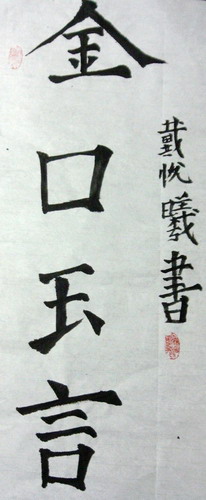 金口玉言
戴悦曦書